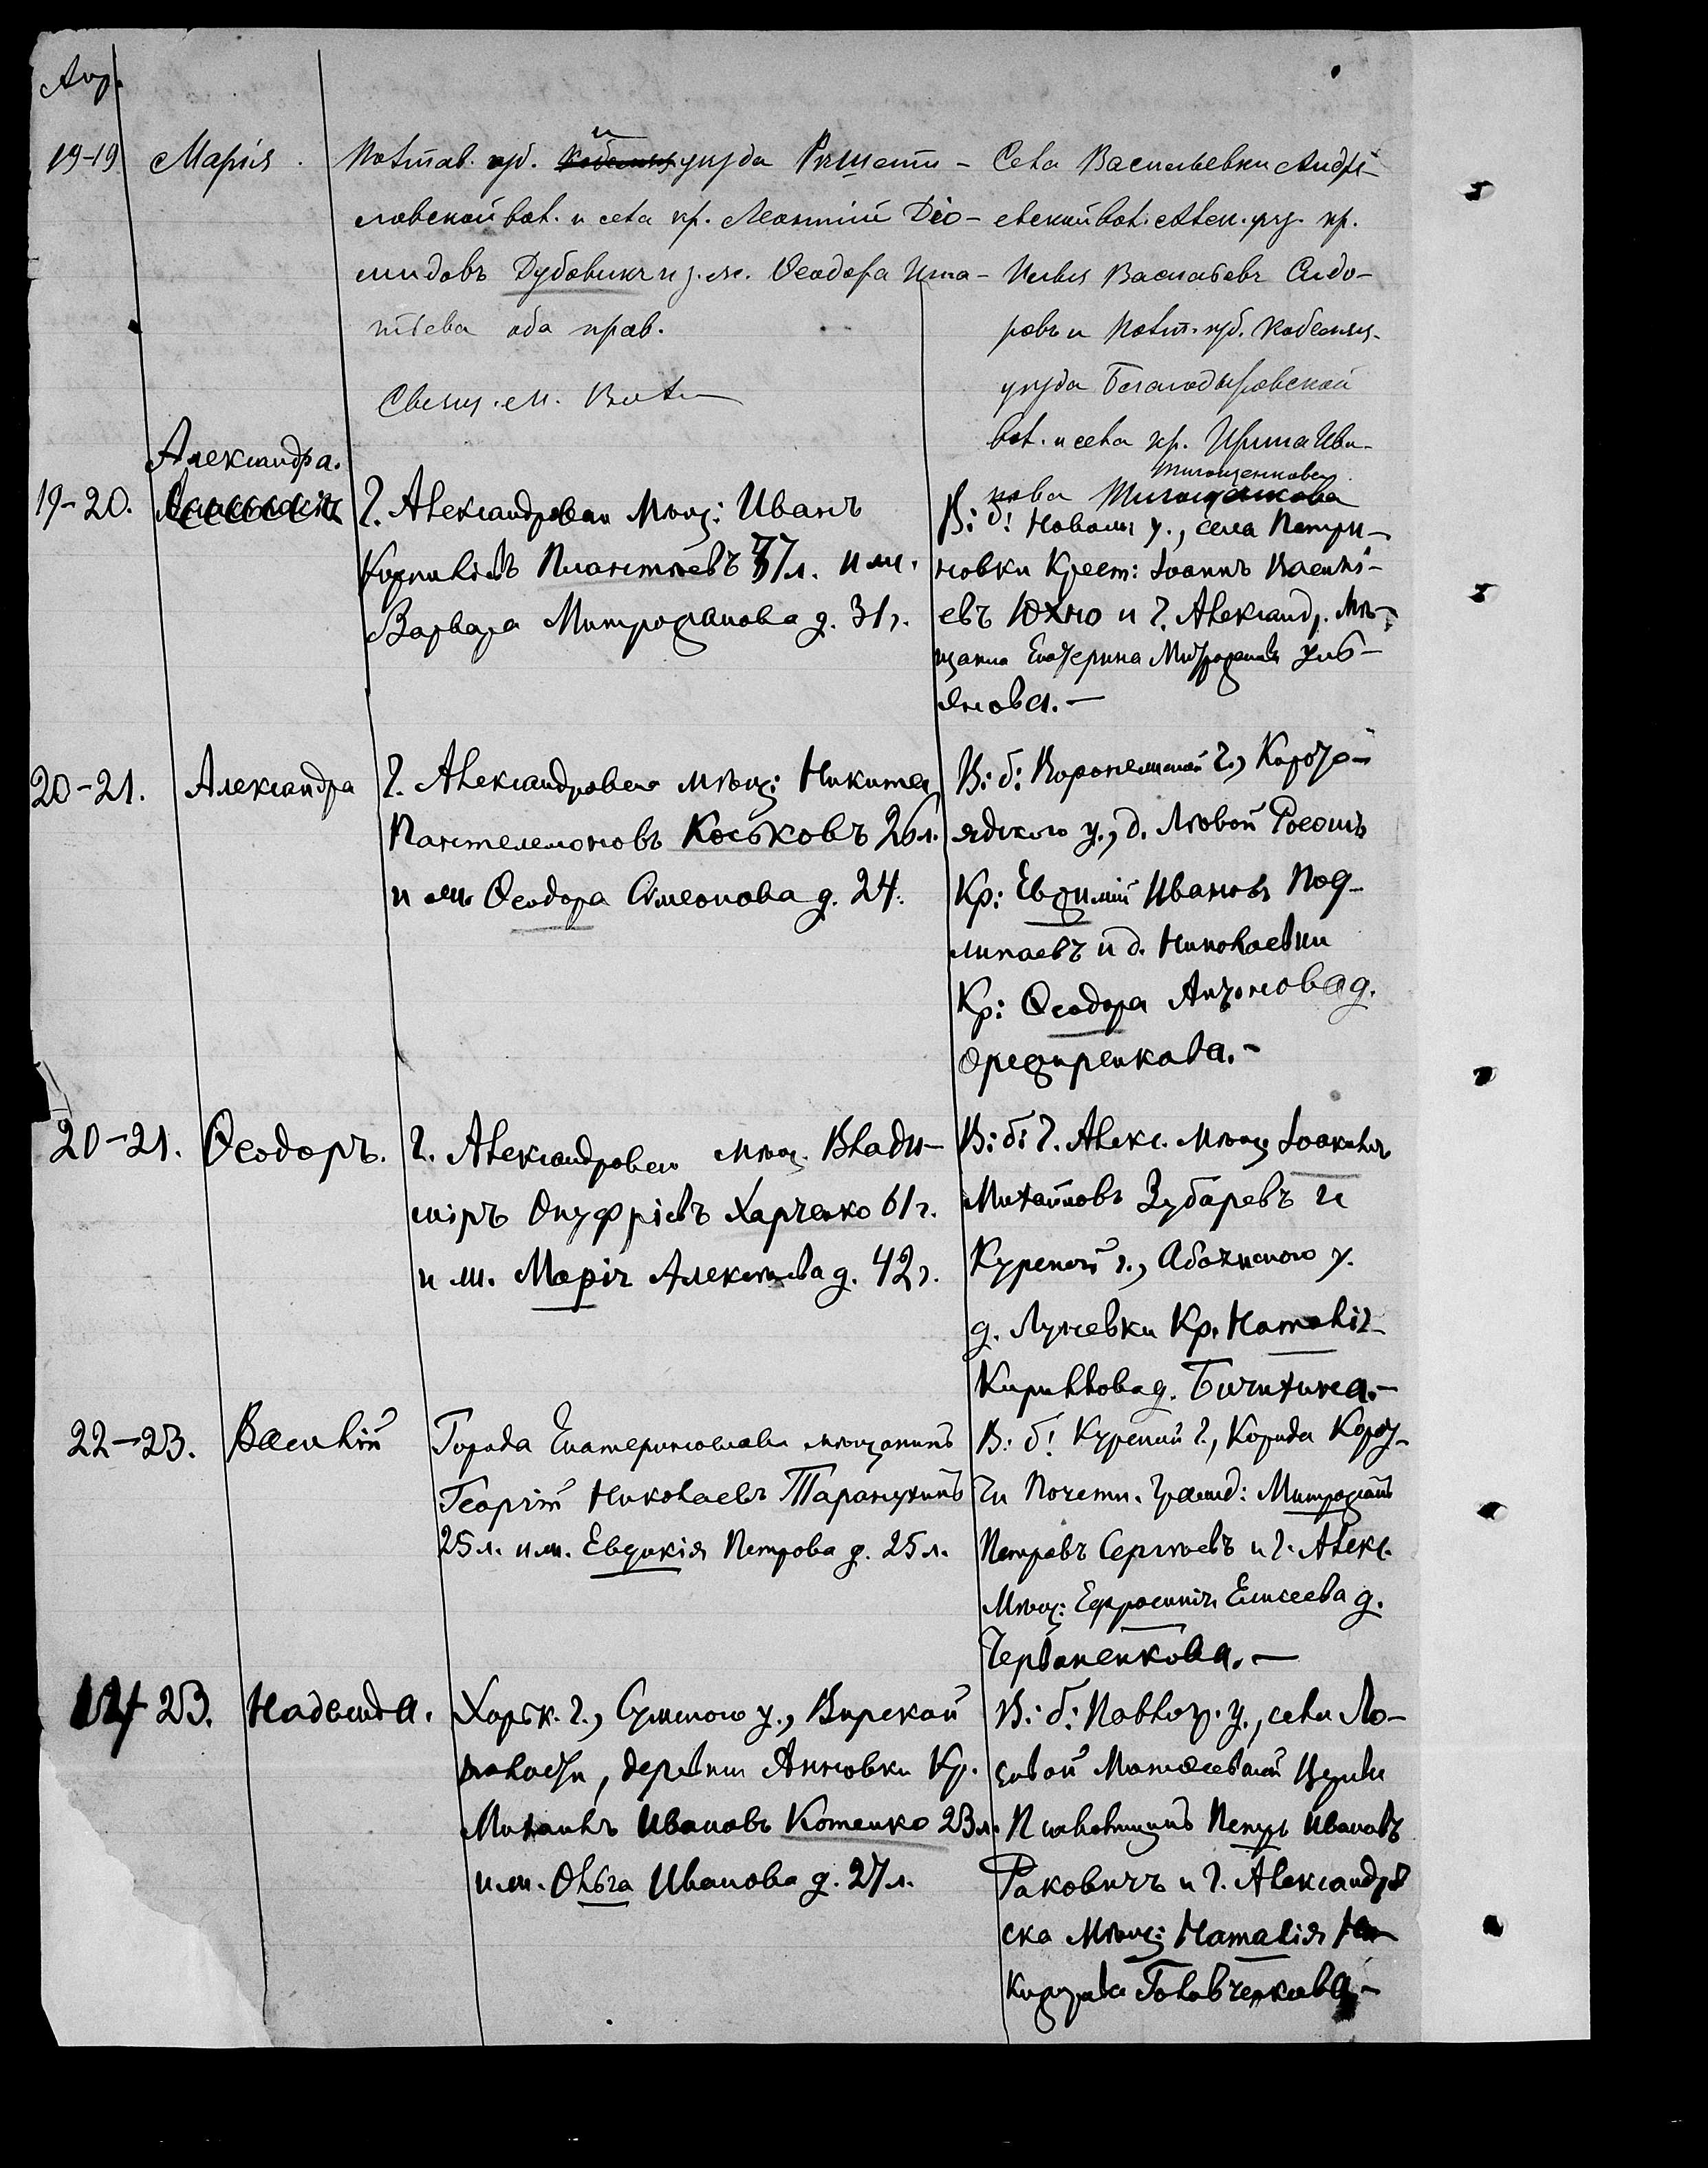 Апр.
19-19 Марія. Полтав. губ. и уѣзда Рѣшети-
ловской вол. и села кр. Леонтій Діо-
мидовъ Дубовикъ и з. ж. Ѳеодора Игна-
тьева оба прав.
Села Васильевки Андре-
евской вол. Алек. уѣз. кр.
Илья Васильевъ Сидо-
ровъ и Полт. губ. Кобеляк.
уѣзда
вол. и села кр. Ирина Ива-
нова
19-20. Александра.
Г. Александровска Мѣщ: Иванъ
Корниліевъ 37 л. и ж.
Варвара Митрофанова д. 31 г.
В: б: Новом. у., села Петри-
ковки Крест: Іоаннъ Василі-
евъ Юхно и г. Александ. Мѣ-
щанка Екатерина Митрофанова
янова.-
20-21. Александра
Г. Александровска мѣщ: Никита
Пантелемоновъ Коськовъ 26 л.
и ж. Ѳеодора Симеонова д. 24.
В: б: Воронежской г.,
у., д. Росошь
Кр: Евфимій Ивановъ Под-
липаевъ и д. Николаевки
Кр: Ѳеодора Антонова д.
20-21. Ѳеодоръ.
Г. Александровска мѣщ. Влади-
міръ Онуфріевъ Харченко 61 г.
и ж. Марія Алексѣева д. 42 г.
В: б: г. Алекс. Мѣщ
Михайловъ Зубаревъ и
Курской г., Обоянского у.
д. Лучевки Кр. Наталія
Кириллова д.
22-23. Василій
Города Екатеринослава мѣщанинъ
Георгій Николаевъ Таранухинъ
25 л. и ж. Евдокія Петрова д. 25 л.
В: б: Курской г., Города Коро-
чи Почетн. Гражд: Митрофанъ
Петровъ Сергѣевъ и г. Алекс.
Мѣщ: Ефросинія Елисеева д.
Черваненкова.-
23. Надежда.
Харьк. г., Сумского у., Вирской
волости, деревни Анновки Кр.
Михаилъ Ивановъ Котенко 23 л.
и ж. Ольга Иванова д. 27 л.
В: б: Павлогр. у., села Ло-
зовой Церкви
Псаломщикъ Петръ Ивановъ
Раковичъ и г. Александров
ска Мѣщ: Наталія
Головченкова-